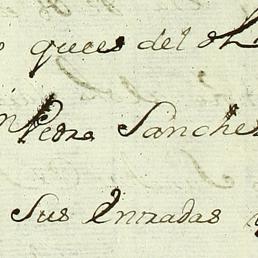 queces del
Pedro Sanches
Sus Entradas y